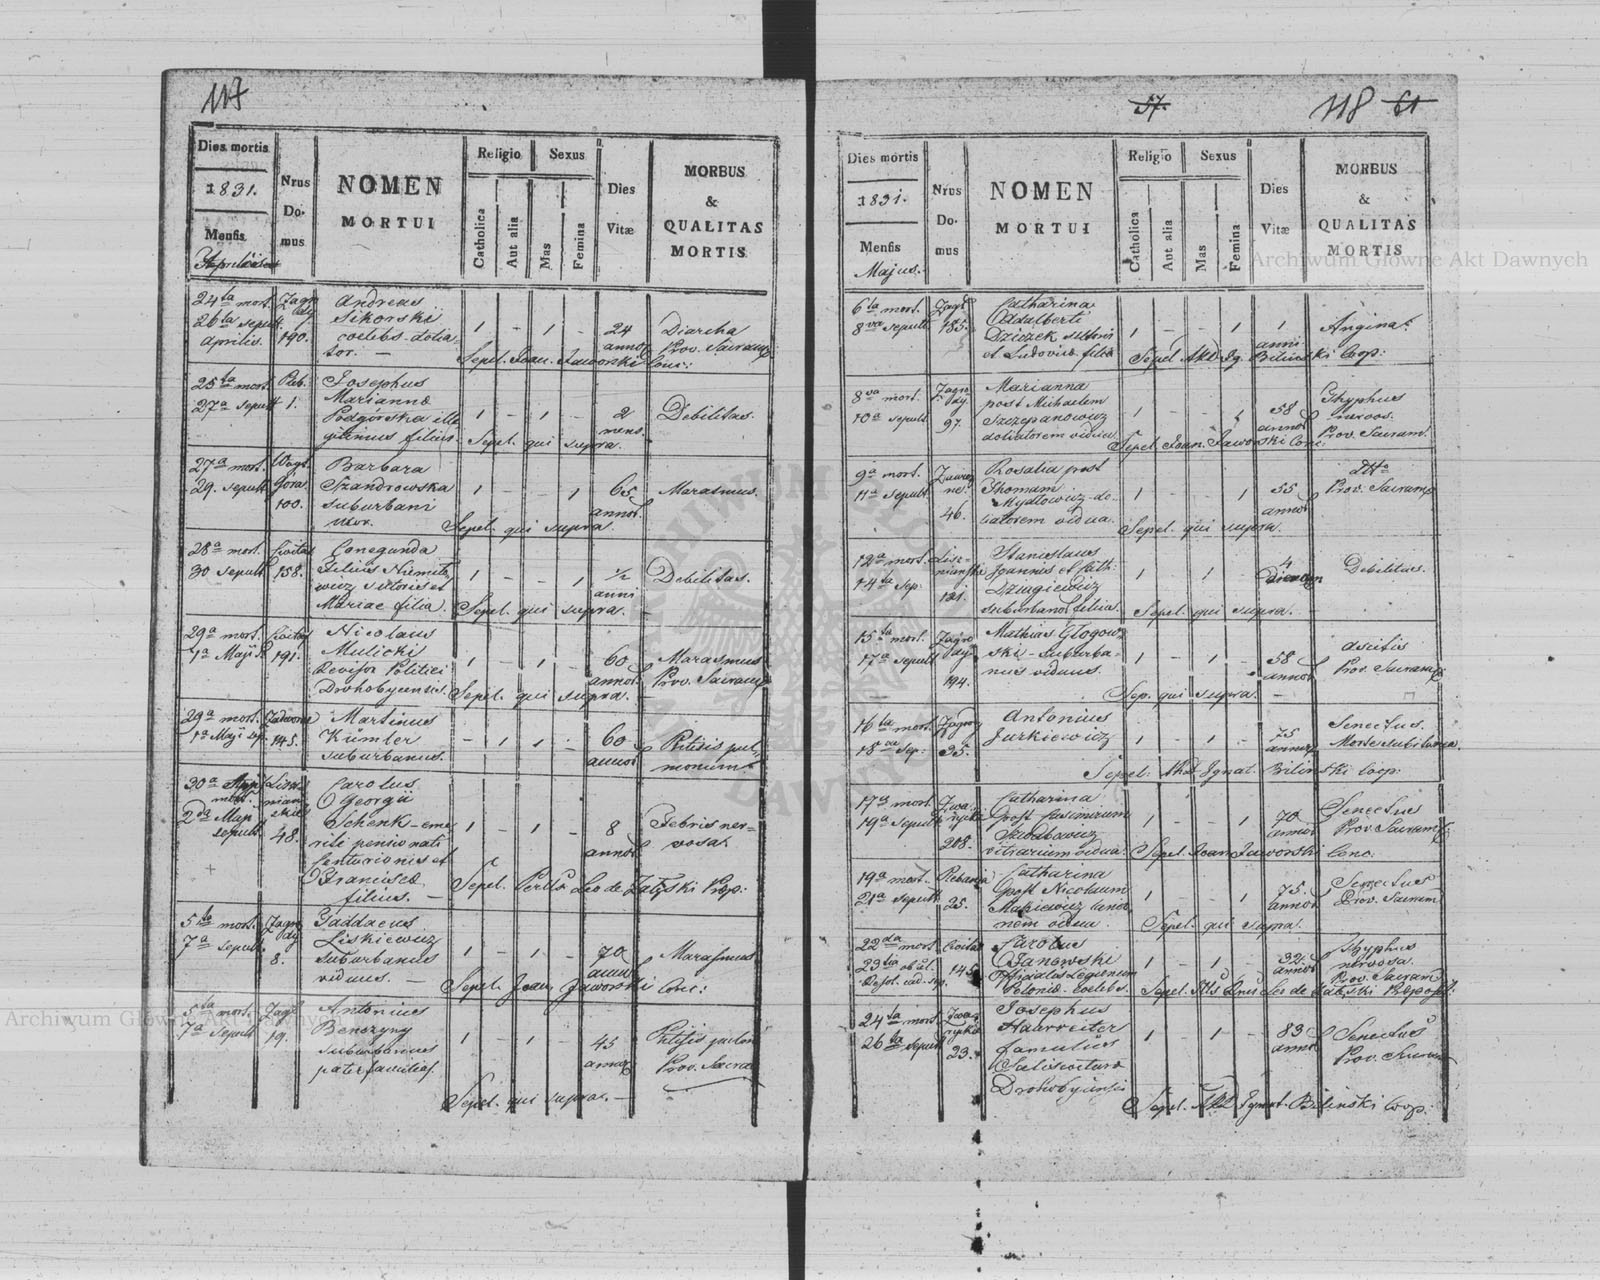 117
Dies mortis
1831.
Mensis
Aprilis
Nrus
Do-
mus
NOMEN
MORTUI
Religio
Catholica
Aut alia
Sexus
Mas
Femina
Dies
Vitæ
MORBUS
&
QUALITAS
MORTIS
24ta mort. Andreas
26ta sepult. Sikorski 1 - 1 - 24 Diarrhea
Aprilis. 190. coelebs dolia- annor. Prov. Sacram.
tor. — Sepel. Joan. Jaworski Conc:
25ta mort. Josephus
27a sepult 1. Marianna
Podgórska ille- 1 - 1 - 2 Debilitas.
gitimus filius. Sepel. qui supra. mens.
27a mort. Barbara
29. sepult Gora Szandrowska 1 - - 1 65 Marasmus.
100. suburbani annor.
uxor. Sepel. qui supra.
28a mort. Civitas Conegunda
30 sepult 158. 1 - - 1 1/2 Debilitas.
sutoris et anni
Mariae filia. Sepel. qui supra. —
29a mort. Civitas Nicolaus
1a Maji 191. Mulicki 1 - 1 - 60 Marasmus
Revisor Politiei annor. Prov. Sacram.
Drohobycensis. Sepel. qui supra. —
29a mort. Martinus
1a Maji sep. 145. Kümler - 1 1 - 60 Phtisis pul-
suburbanus. annor. monum
30a Carolus
mort. Georgii
2da Maji Schenk - eme- 1 - 1 - 8 Febris ner-
sepult. 48. riti pensionati annor. vosa.
Centurionis et
Francisca Sepel. Leo de Załęski Prep:
filius. —
5ta mort. Zagro Taddaeus
7a sepult. dy Liskiewicz 1 - 1 - 70 Marasmus
8. suburbanus annor.
viduus. — Sepel. Joan. Jaworski Conc:
5ta mort. Zagr. Antonius
7a sepult 19. Benczyny 1 - 1 - 45 Phtisis pulm
suburbanus annor. Prov. Sacra
pater familias.
Sepel. qui supra. —
57.
118 61
Dies mortis
1831.
Mensis
Majus.
Nrus
Do-
mus
NOMEN
MORTUI
Religio
Catholica
Aut alia
Sexus
Mas
Femina
Dies
Vitæ
MORBUS
&
QUALITAS
MORTIS
6ta mort. Catharina
8va sepult. 185. Adalberti 1 - - 1 1 Angina.
Dziczek sutoris anni
et Ludovica filia Sepel. Ig. Bilinski Coop:
8va mort. Zagro Marianna
10a sepult dy post Michaelem 1 - - 1 58 Thyphus
97. Szczepanowicz annor nervos.
doliatorem vidua. Sepel. Joan. Jaworski Conc. Prov. Sacram.
9a mort. Rosalia post
11a sepult. Thomam 1 - - 1 55 dtto
46. Mydłowicz do- annor Prov. Sacram.
liatorem vidua. Sepel. qui supra.
12a mort. Lisz- Stanislaus
14ta sep. nianski Joannis et Cath. 1 - 1 - 4 Debilitas.
121. Dziugiewicz dierum
suburbanor. filius. Sepel. qui supra.
15ta mort. Zagro Mathias Głogow-
17a sepult dy ski - suburba- 1 - 1 - 58 Ascitis
194. nus viduus. annor Prov. Sacram.
Sep. qui supra. —
16ta mort. Zagrody Antonius
18va sep: 35. Jurkiewicz 1 - 1 - 75 Senectus.
annor Morte subitanea.
Sepel. Ignat. Bilinski Coop:
17a mort. Zwa- Catharina
19a sepult rycka post Casimirum 1 - - 1 70 Senectus
208. annor Prov. Sacram.
vitriarium vidua. Sepel. Joan. Jaworski Conc:
19a mort. Plebania Catharina
21a sepult. 25. post Nicolaum 1 - - 1 75. Senectus
annor Prov. Sacram.
nem vidua. Sepel. qui supra.
22da mort. Civitas Carolus
23tia 145. Janowski 1 - 1 - 32. Thyphus
Officialis Legionum annor nervosa.
Polonica. coelebs. Sepel. Leo de Załęski Præposit: Prov. Sacram.
24ta mort. Zwa- Josephus
26ta sepult rycka Haurreiter 1 - 1 - 83 Senectus
23. famulus annor Prov. Sacram
Drohobycensis
Sepel. Ignat. Bilinski Coop:
Archiwum Główne Akt Dawnych
Archiwum Główne Akt Dawnych
ARCHIWUM GŁÓWNE AKT DAWNYCH